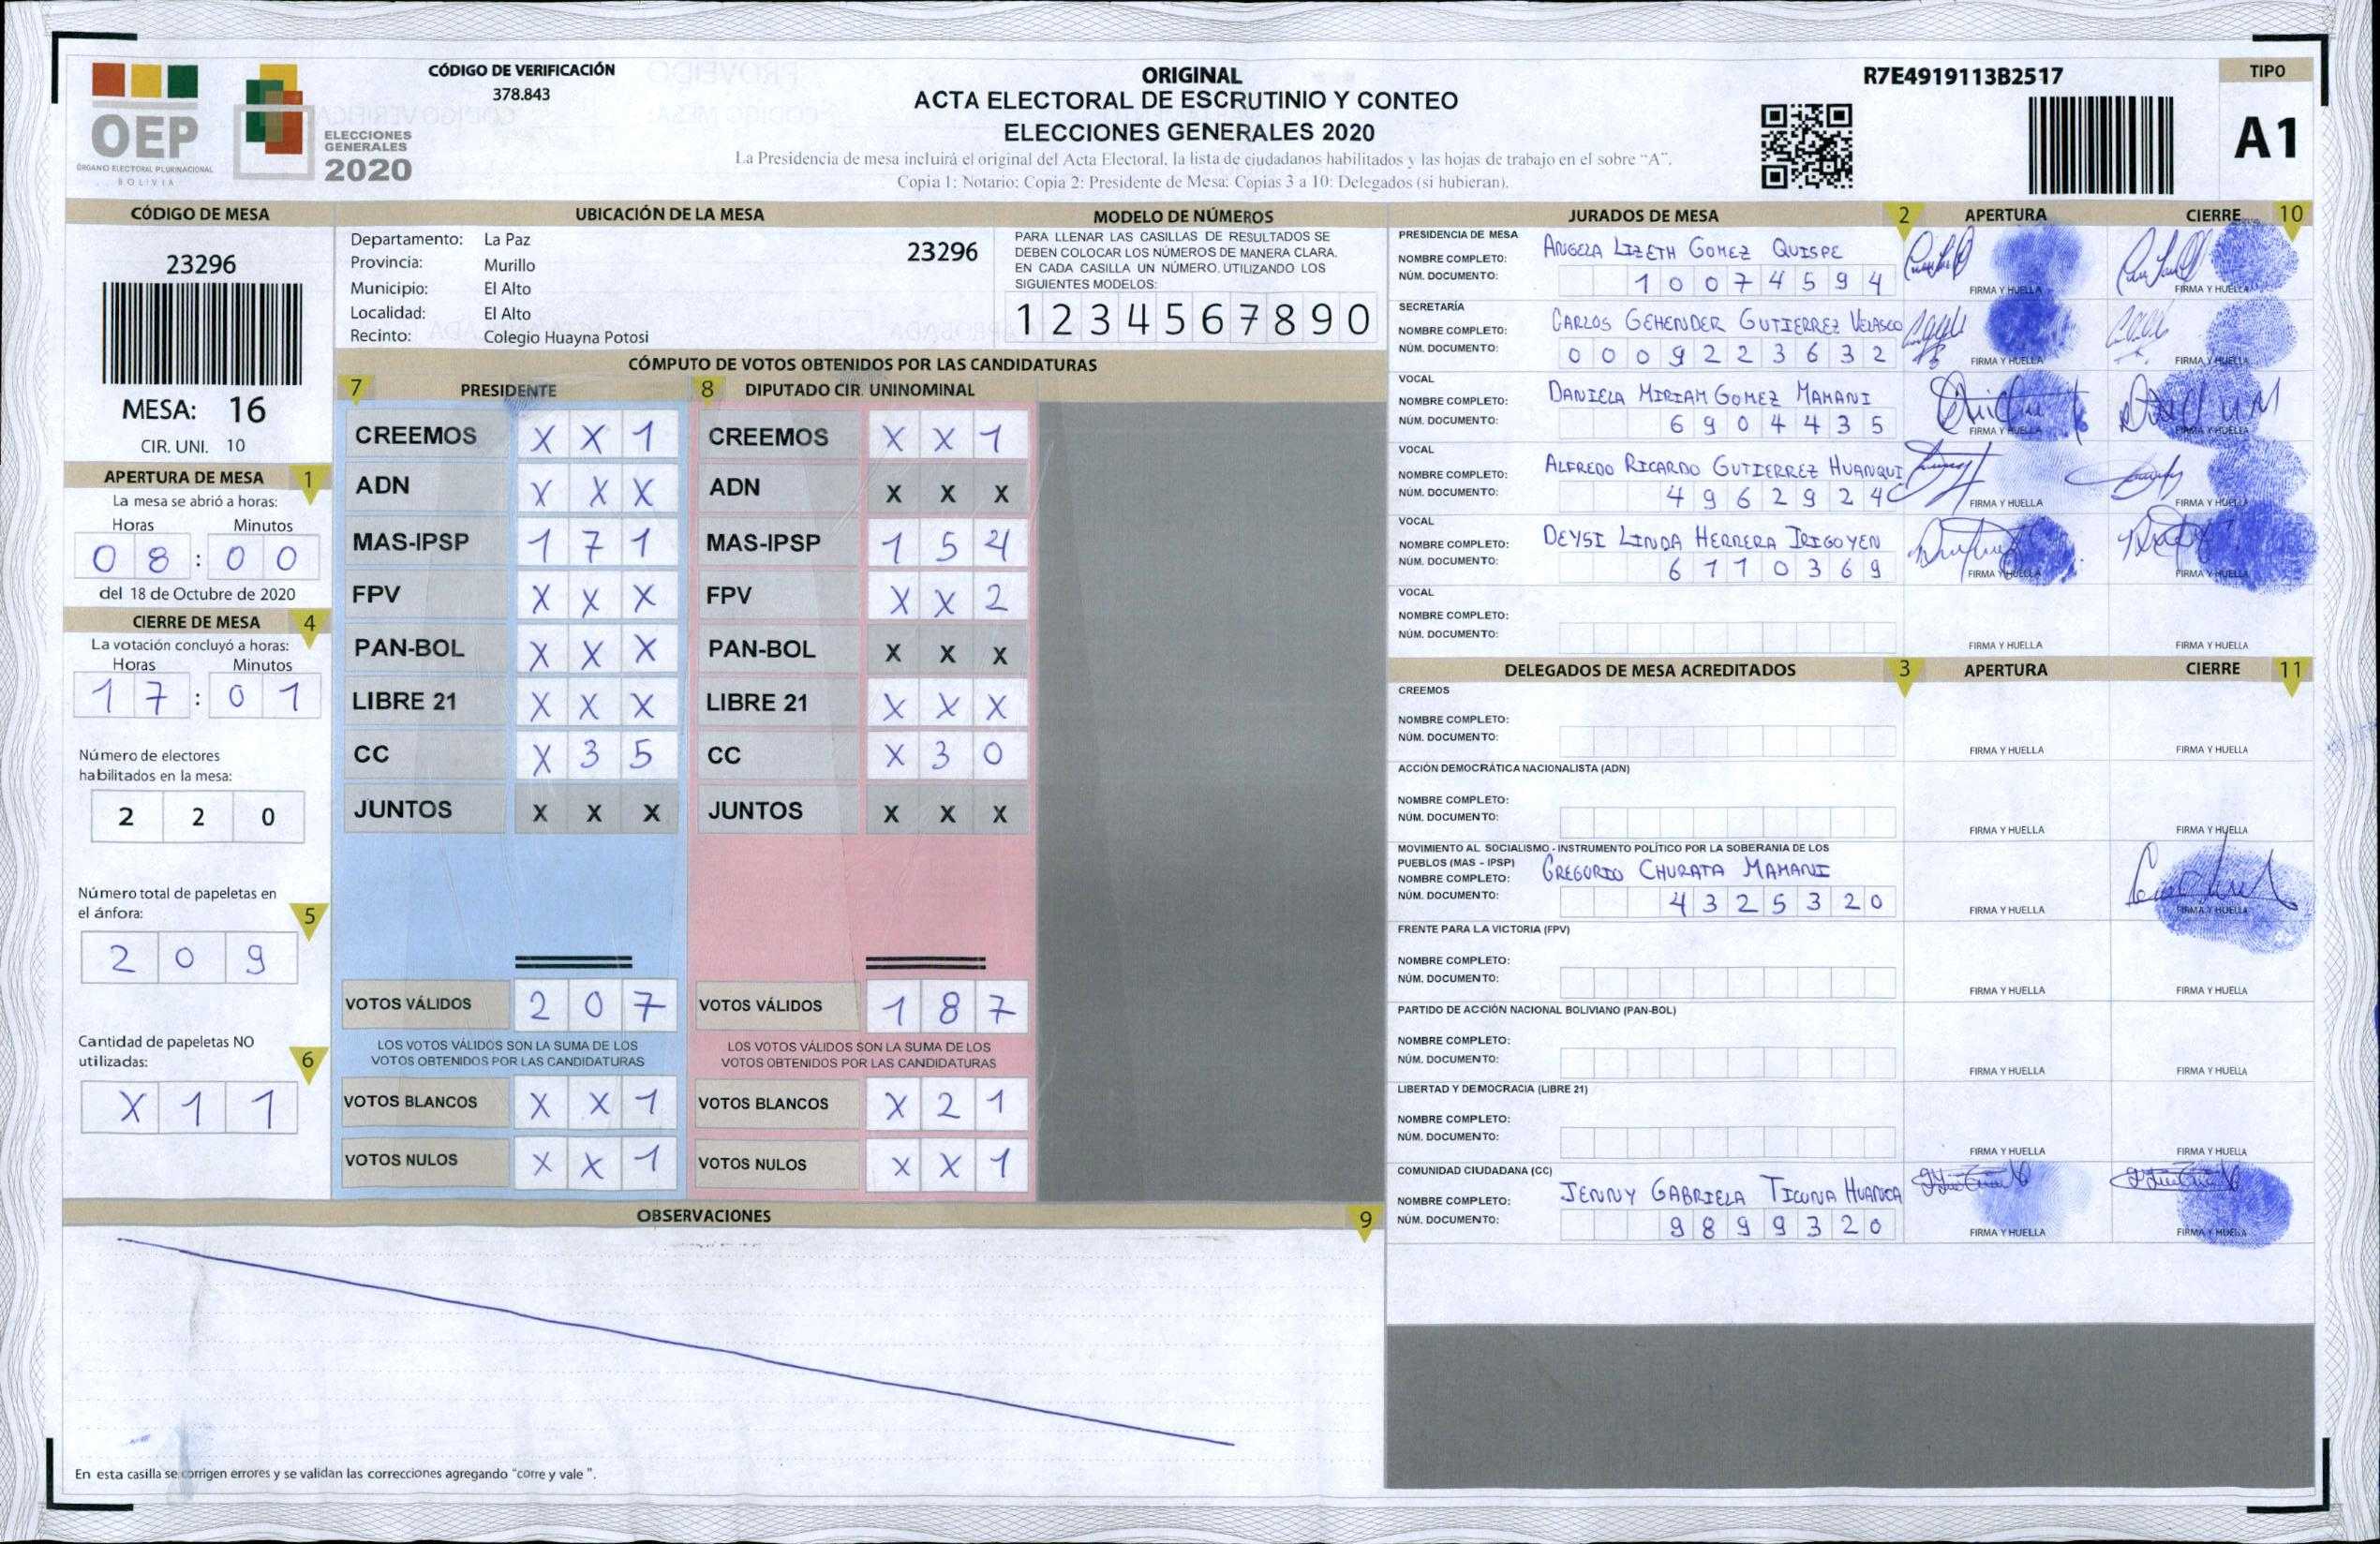 OEP
ÓRGANO ELECTORAL PLURINACIONAL
BOLIVIA
ELECCIONES
GENERALES
2020
CÓDIGO DE VERIFICACIÓN
378.843
ORIGINAL
ACTA ELECTORAL DE ESCRUTINIO Y CONTEO
ELECCIONES GENERALES 2020
La Presidencia de mesa incluirá el original del Acta Electoral, la lista de ciudadanos habilitados y las hojas de trabajo en el sobre "A".
Copia 1: Notario; Copia 2: Presidente de Mesa; Copias 3 a 10: Delegados (si hubieran).
R7E4919113B2517
TIPO
A1
CÓDIGO DE MESA
23296
MESA: 16
CIR. UNI. 10
APERTURA DE MESA 1
La mesa se abrió a horas:
Horas Minutos
0 8 : 0 0
del 18 de Octubre de 2020
CIERRE DE MESA 4
La votación concluyó a horas:
Horas Minutos
1 7 : 0 1
Número de electores
habilitados en la mesa:
2 2 0
Número total de papeletas en
el ánfora: 5
2 0 9
Cantidad de papeletas NO
utilizadas: 6
X 1 1
UBICACIÓN DE LA MESA
Departamento: La Paz
23296
Provincia: Murillo
Municipio: El Alto
Localidad: El Alto
Recinto: Colegio Huayna Potosi
MODELO DE NÚMEROS
PARA LLENAR LAS CASILLAS DE RESULTADOS SE
DEBEN COLOCAR LOS NÚMEROS DE MANERA CLARA.
EN CADA CASILLA UN NÚMERO. UTILIZANDO LOS
SIGUIENTES MODELOS:
1 2 3 4 5 6 7 8 9 0
CÓMPUTO DE VOTOS OBTENIDOS POR LAS CANDIDATURAS
7 PRESIDENTE 8 DIPUTADO CIR. UNINOMINAL
CREEMOS X X 1 CREEMOS X X 1
ADN X X X ADN X X X
MAS-IPSP 1 7 1 MAS-IPSP 1 5 4
FPV X X X FPV X X 2
PAN-BOL X X X PAN-BOL X X X
LIBRE 21 X X X LIBRE 21 X X X
CC X 3 5 CC X 3 0
JUNTOS X X X JUNTOS X X X
VOTOS VÁLIDOS 2 0 7 VOTOS VÁLIDOS 1 8 7
LOS VOTOS VÁLIDOS SON LA SUMA DE LOS LOS VOTOS VÁLIDOS SON LA SUMA DE LOS
VOTOS OBTENIDOS POR LAS CANDIDATURAS VOTOS OBTENIDOS POR LAS CANDIDATURAS
VOTOS BLANCOS X X 1 VOTOS BLANCOS X 2 1
VOTOS NULOS X X 1 VOTOS NULOS X X 1
OBSERVACIONES 9
En esta casilla se corrigen errores y se validan las correcciones agregando "corre y vale ".
JURADOS DE MESA 2 APERTURA CIERRE 10
PRESIDENCIA DE MESA
NOMBRE COMPLETO: ANGELA LIZETH GOMEZ QUISPE
NÚM. DOCUMENTO: 1 0 0 7 4 5 9 4
FIRMA Y HUELLA FIRMA Y HUELLA
SECRETARÍA
NOMBRE COMPLETO: CARLOS GEHENDER GUTIERREZ VELASCO
NÚM. DOCUMENTO: 0 0 0 9 2 2 3 6 3 2
FIRMA Y HUELLA FIRMA Y HUELLA
VOCAL
NOMBRE COMPLETO: DANIELA MIRIAM GOMEZ MAMANI
NÚM. DOCUMENTO: 6 9 0 4 4 3 5
FIRMA Y HUELLA FIRMA Y HUELLA
VOCAL
NOMBRE COMPLETO: ALFREDO RICARDO GUTIERREZ HUANQUI
NÚM. DOCUMENTO: 4 9 6 2 9 2 4
FIRMA Y HUELLA FIRMA Y HUELLA
VOCAL
NOMBRE COMPLETO: DEYSI LINDA HERRERA IRIGOYEN
NÚM. DOCUMENTO: 6 1 1 0 3 6 9
FIRMA Y HUELLA FIRMA Y HUELLA
VOCAL
NOMBRE COMPLETO:
NÚM. DOCUMENTO:
FIRMA Y HUELLA FIRMA Y HUELLA
DELEGADOS DE MESA ACREDITADOS 3 APERTURA CIERRE 11
CREEMOS
NOMBRE COMPLETO:
NÚM. DOCUMENTO:
FIRMA Y HUELLA FIRMA Y HUELLA
ACCIÓN DEMOCRÁTICA NACIONALISTA (ADN)
NOMBRE COMPLETO:
NÚM. DOCUMENTO:
FIRMA Y HUELLA FIRMA Y HUELLA
MOVIMIENTO AL SOCIALISMO - INSTRUMENTO POLÍTICO POR LA SOBERANIA DE LOS
PUEBLOS (MAS - IPSP)
NOMBRE COMPLETO: GREGORIO CHURATA MAMANI
NÚM. DOCUMENTO: 4 3 2 5 3 2 0
FIRMA Y HUELLA FIRMA Y HUELLA
FRENTE PARA LA VICTORIA (FPV)
NOMBRE COMPLETO:
NÚM. DOCUMENTO:
FIRMA Y HUELLA FIRMA Y HUELLA
PARTIDO DE ACCIÓN NACIONAL BOLIVIANO (PAN-BOL)
NOMBRE COMPLETO:
NÚM. DOCUMENTO:
FIRMA Y HUELLA FIRMA Y HUELLA
LIBERTAD Y DEMOCRACIA (LIBRE 21)
NOMBRE COMPLETO:
NÚM. DOCUMENTO:
FIRMA Y HUELLA FIRMA Y HUELLA
COMUNIDAD CIUDADANA (CC)
NOMBRE COMPLETO: JENNY GABRIELA TICONA HUANCA
NÚM. DOCUMENTO: 9 8 9 9 3 2 0
FIRMA Y HUELLA FIRMA Y HUELLA